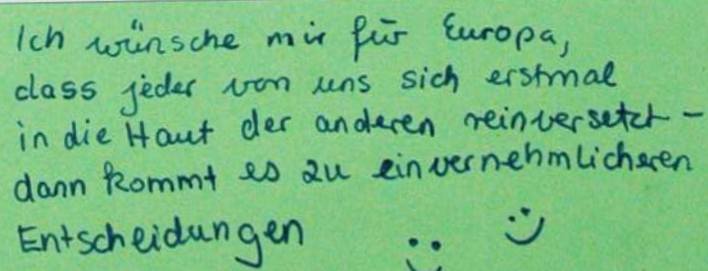 Ich wünsche mir für Europa,
dass jeder von uns sich erstmal
in die Haut der anderen reinversetzt -
dann kommt es zu einvernehmlicheren
Entscheidungen